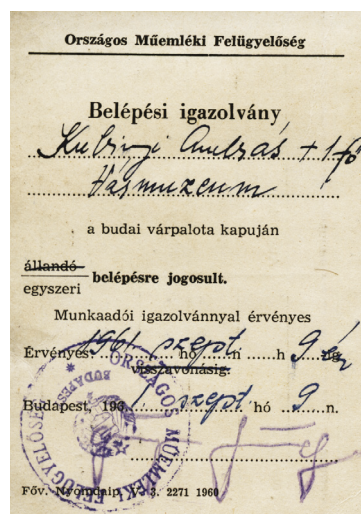 Országos Műemléki Felügyelőség
Belépési igazolvány
Kubinyi András + 1 fő
Vármuzeum
a budai várpalota kapuján
állandó
egyszeri belépésre jogosult.
Munkaadói igazolvánnyal érvényes
Érvényes: 1961 szept hó n h 9 én
visszavonásig.
Budapest, 1961 szept hó 9 n.
ORSZÁGOS MŰEMLÉKI FELÜGYELŐSÉG
BUDAPEST
Főv. Nyomdaip. V. 3. 2271 1960